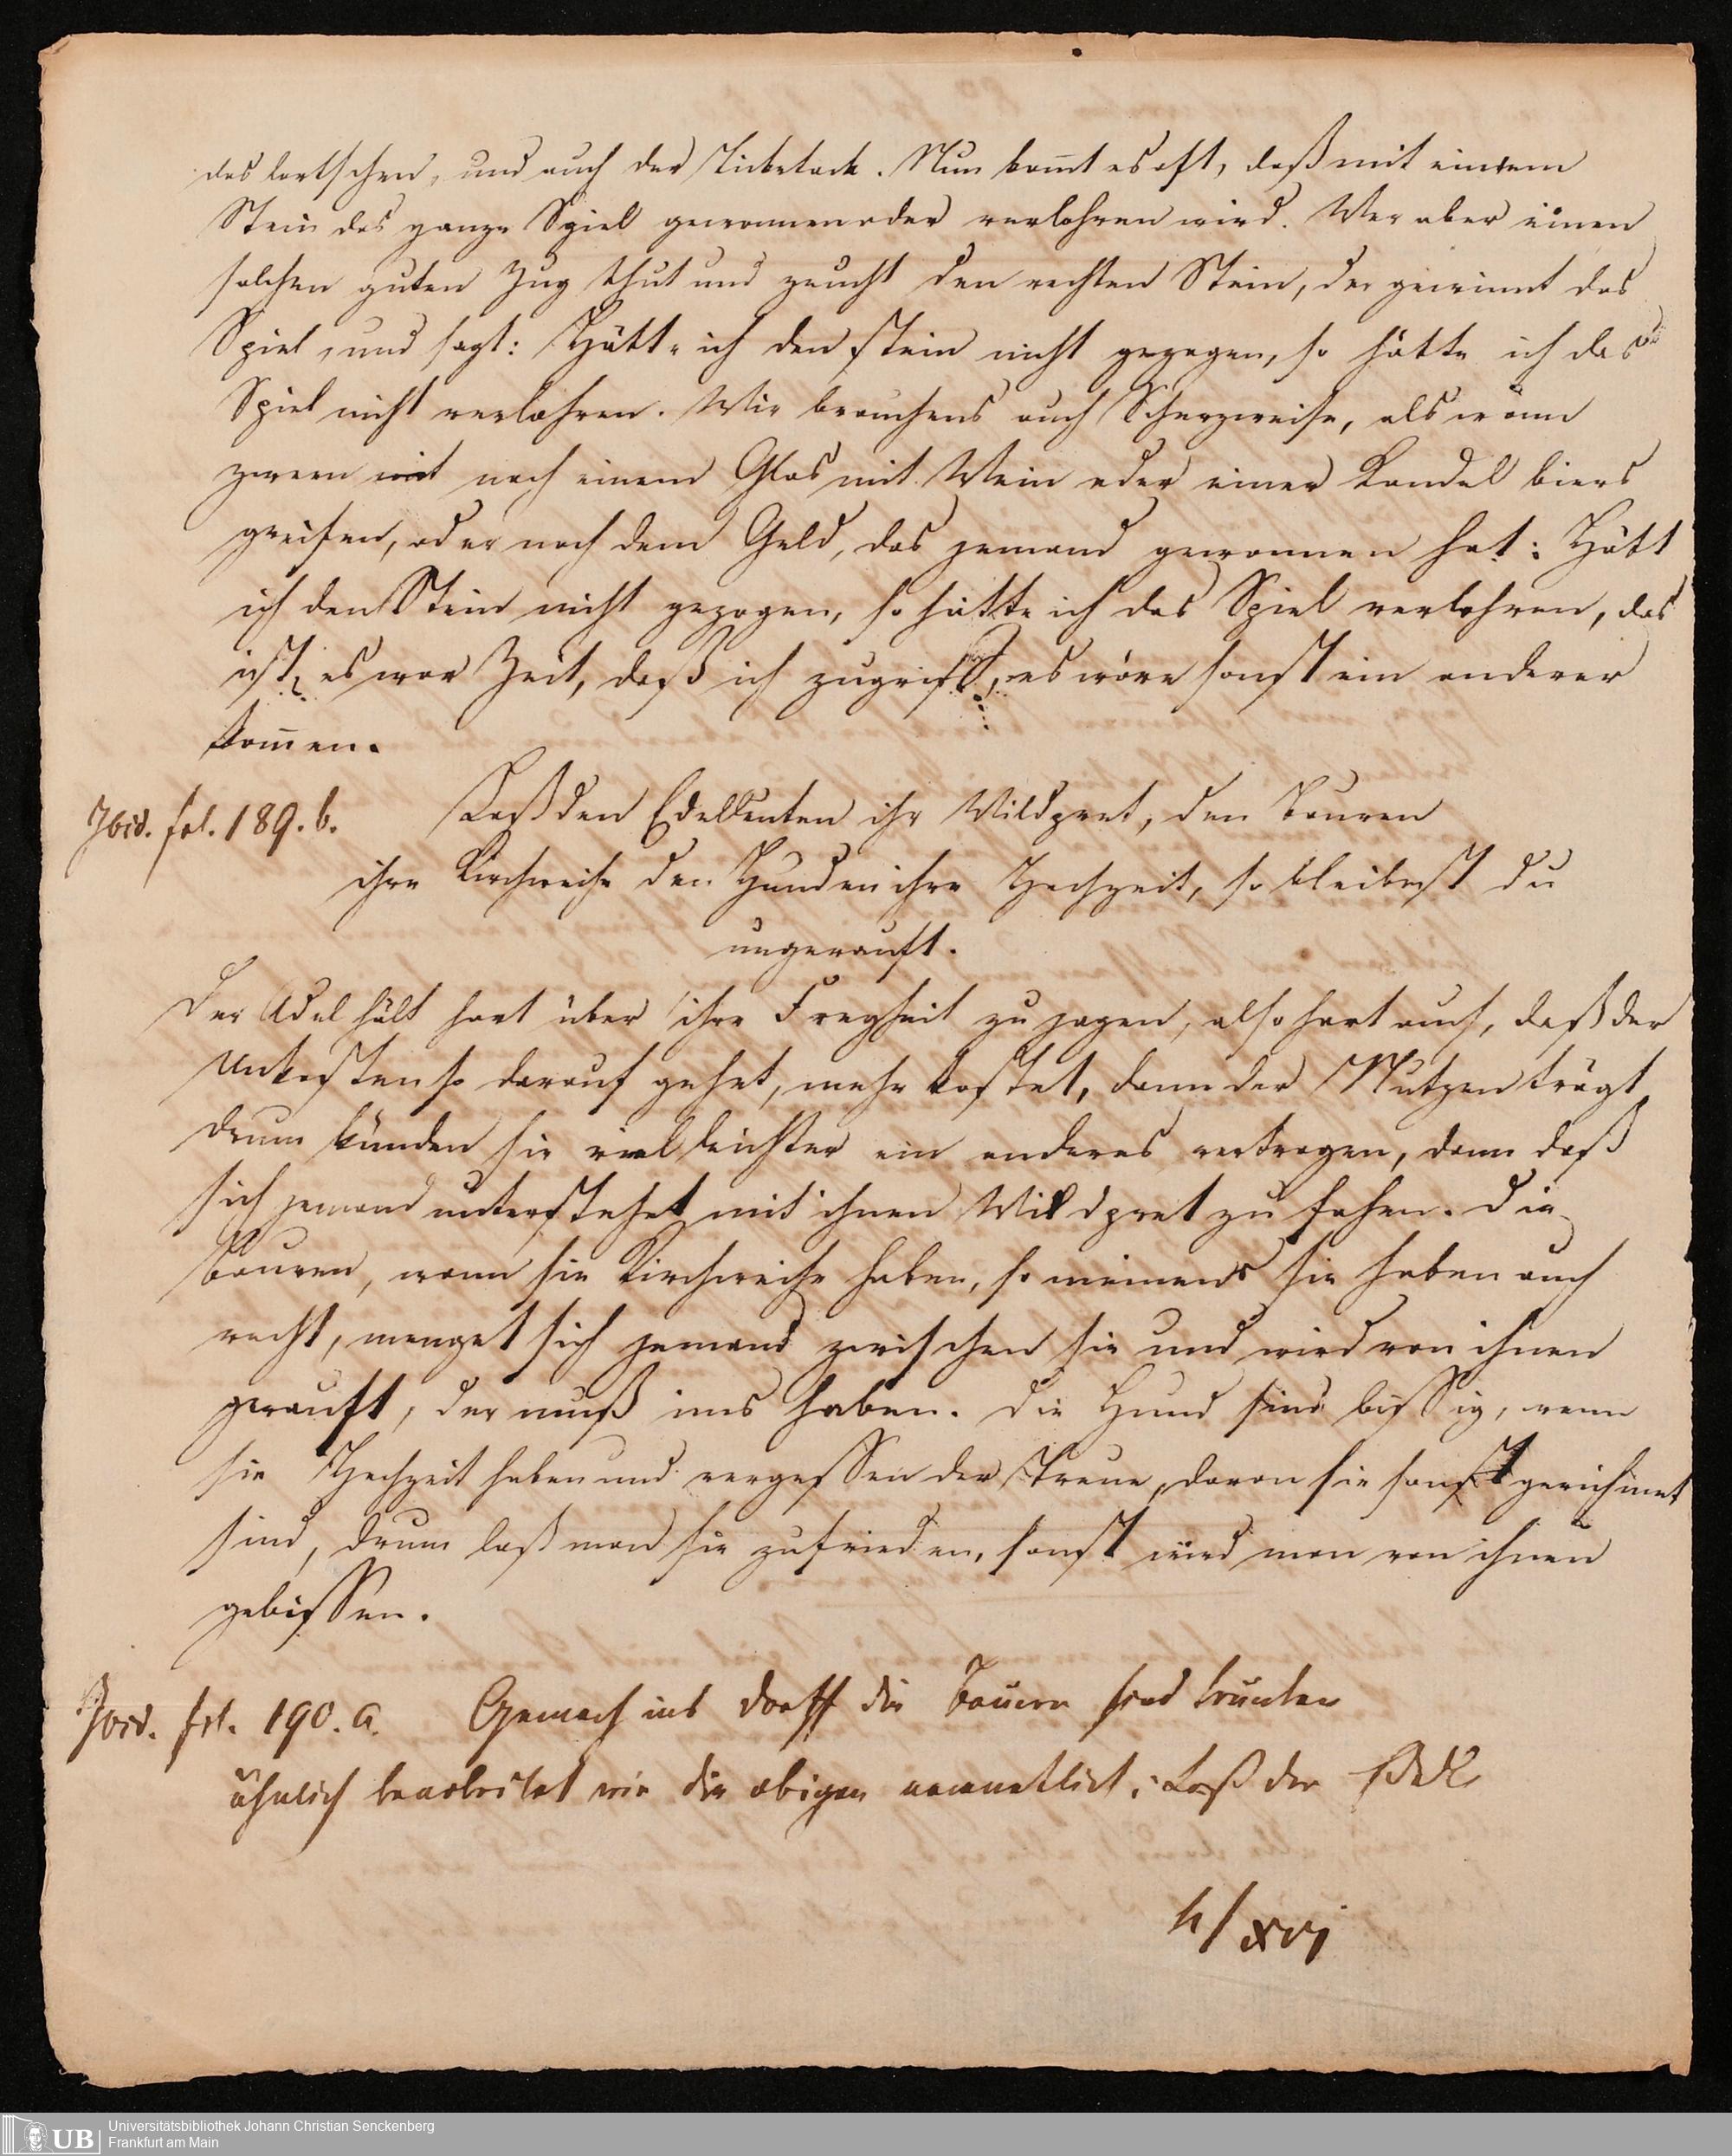 das lortschen, und auch der Ticketack. Nun komt es oft, daß mit einem
Stein das ganze Spiel gewonnen oder verlohren wird. Wer aber einen
solchen guten Zug thut und zeucht den rechten Stein, der gewinnt das
Spiel, und sagt: Hätt ich den stein nicht gezogen, so hätte ich das
Spiel nicht verlohren. Wir brauchens auch Scherzweise, als wann
zween mit nach einem Glas mit Wein oder einer Kandel biers
greifen, oder nach dem Geld, das jemand gewonnen hat: Hätt
ich den Stein nicht gezogen, so hätte ich das Spiel verlohren, das
ist, es war Zeit, daß ich zugriff, es wäre sonst ein anderer
komen.
Ibid. fol. 189. b. Laß den Edelleuten ihr Wildpret, den Bauren
ihre Kirchweihe den Hunden ihre Hochzeit, so bleibest du
ungerauft.
Der Adel hält hart über ihre Freyheit zu jagen, also hart auch, daß der
Unkosten so darauf gehet, mehr kostet, dann der Nutzen trägt,
drum künden sie viel leichter ein anderes vertragen, dann daß
sich jemand unterstehet mit ihnen Wildpret zu fahen. Die
bauren, wann sie Kirchweihe haben, so meinens sie haben auch
recht, menget sich jemand zwischen sie und wird von ihnen
gerauft, der muß ins haben. Die Hund sind bissig, wenn
sie Hochzeit haben und vergessen der Treue, davon sie sonst gerühmet
sind, drum laß man sie zufrieden, sonst wird man von ihnen
gebissen.
Ibid. fol. 190. a. Gemach ins Dorff die Bauern sind trunken
ähnlich bearbeitet wie die obigen namentlich: Laß der Edell
h/xvj
Universitätsbibliothek Johann Christian Senckenberg
Frankfurt am Main
UB